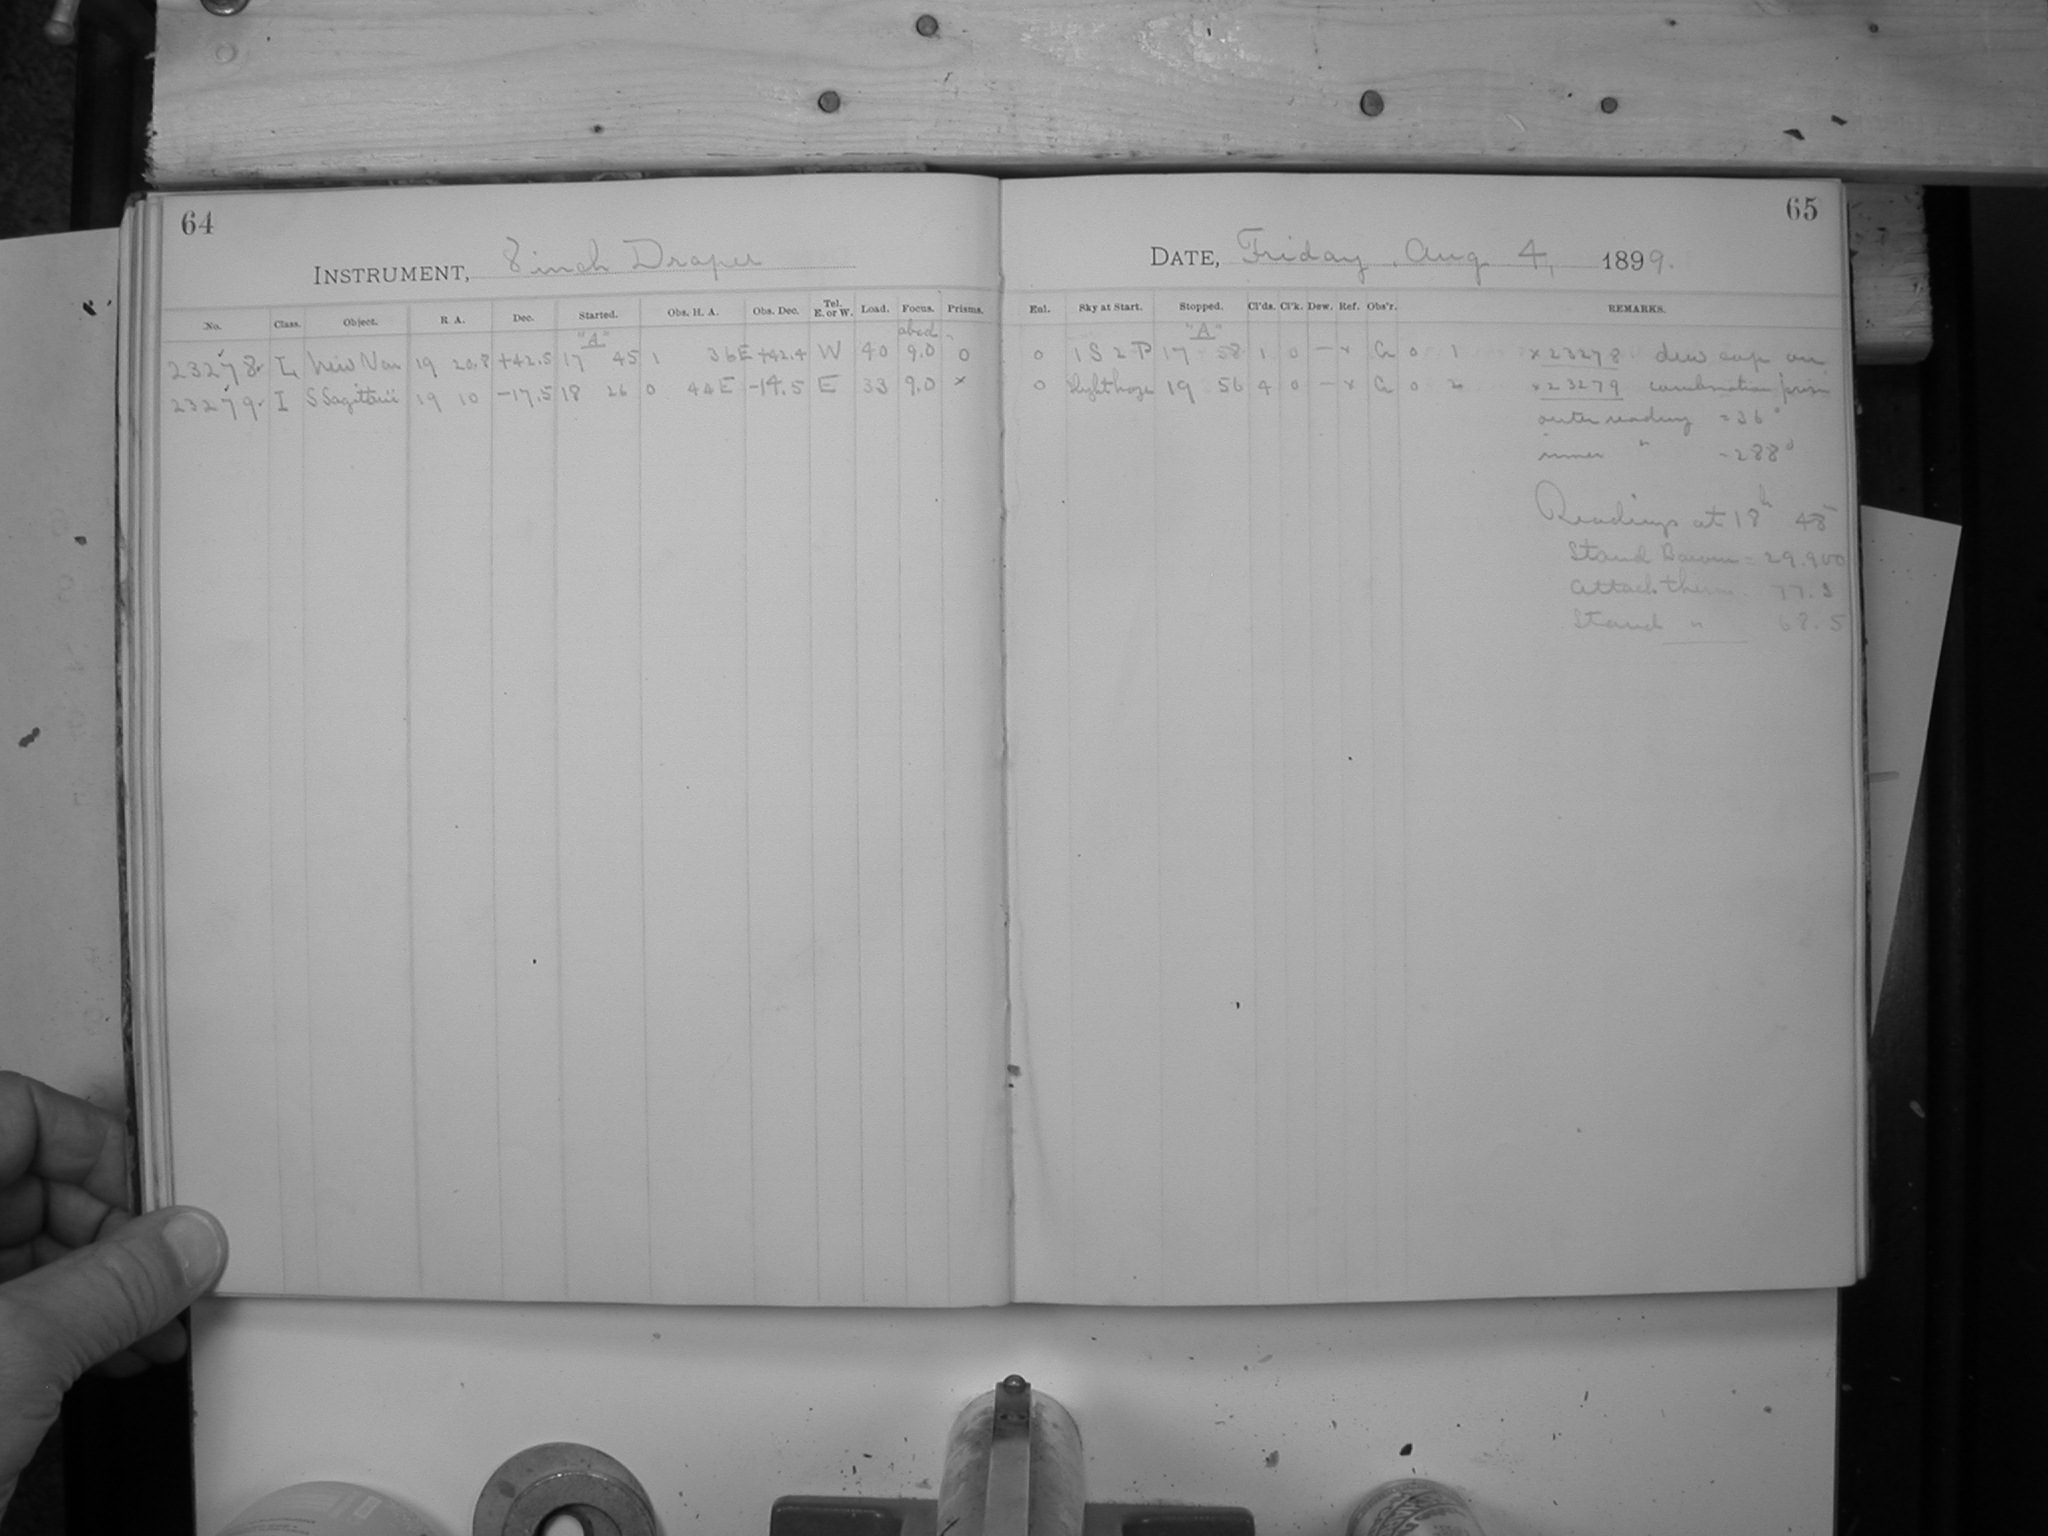 64
INSTRUMENT, 8 inch Draper
No. Class. Object. R A. Dec. Started. Obs. H. A. Obs. Dec. Tel. E. or W. Load. Focus. Prisms.
"A" abcd
23278 L New Var 19 20.8 +42.5 17 45 1 36E +42.4 W 40 9.0 0
23279 I S Sagittarii 19 10 -17.5 18 26 0 44E -14.5 E 33 9.0 x
65
DATE, Friday Aug 4, 1899.
Enl. Sky at Start. Stopped. Cl'ds. Cl'k. Dew. Ref. Obs'r. REMARKS.
"A"
0 1 S 2 P 17 58 1 0 – x 0 1 x 23278 dew cap on
0 Slight haze 19 56 4 0 – x 0 2 x 23279 combination prism
outer reading = 36°
inner " = 288°
Readings at 18h 48m
Stand Barom = 29.900
Attach therm
Stand " 68.5